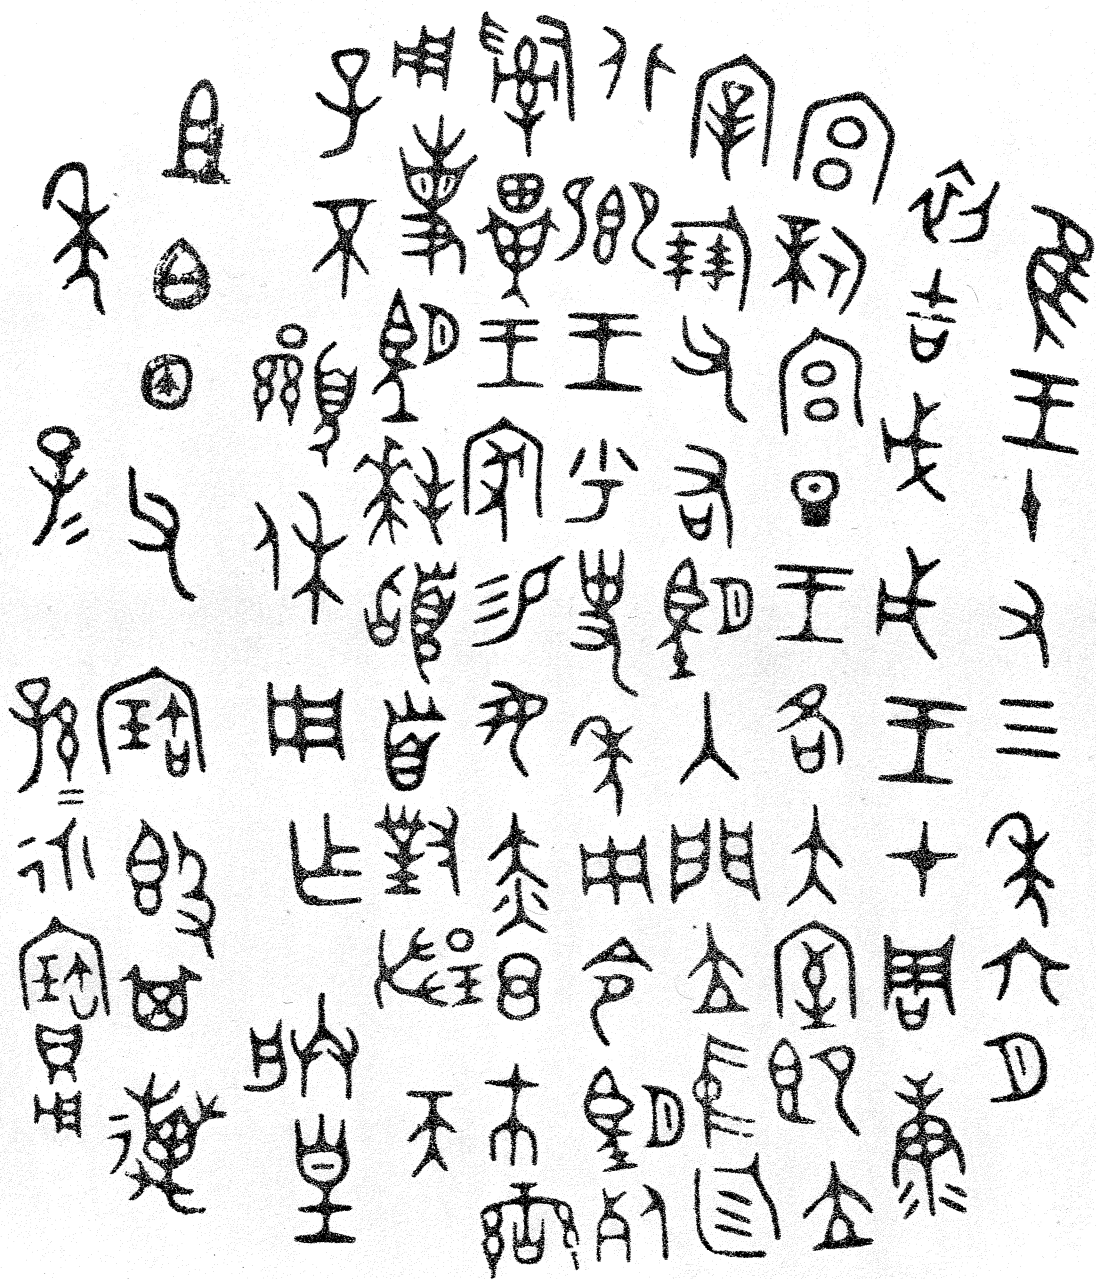 隹王十又三年六月
初吉戊戌王才周康
宮新宮旦王各大室即立
宰倗父右朢入門立中廷
北鄉王乎史年冊令朢死
𤔲畢王家易女赤⊖巿䜌
用事朢拜𩒨首對揚天
子不顯休用乍朕皇
且白父寶𣪘其萬
年子=孫=永寶用